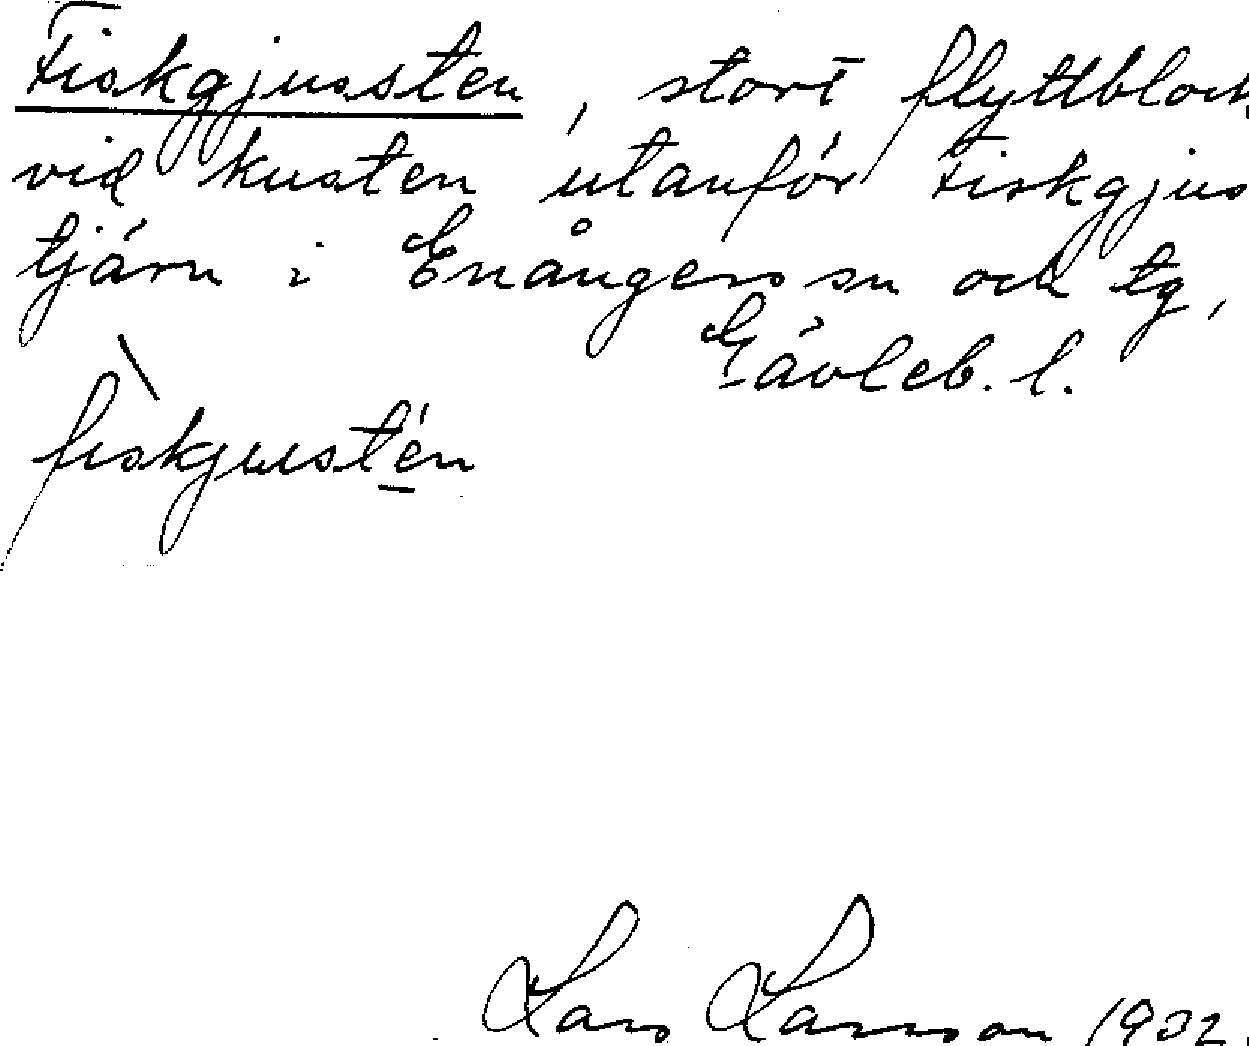 Fiskgjussten, stort flyttblock
vid kusten utanför Fiskgjus
tjärn i Enångers sn och tg,
Gävleb. l.
fiskjusstén
Lars Larsson 1932.